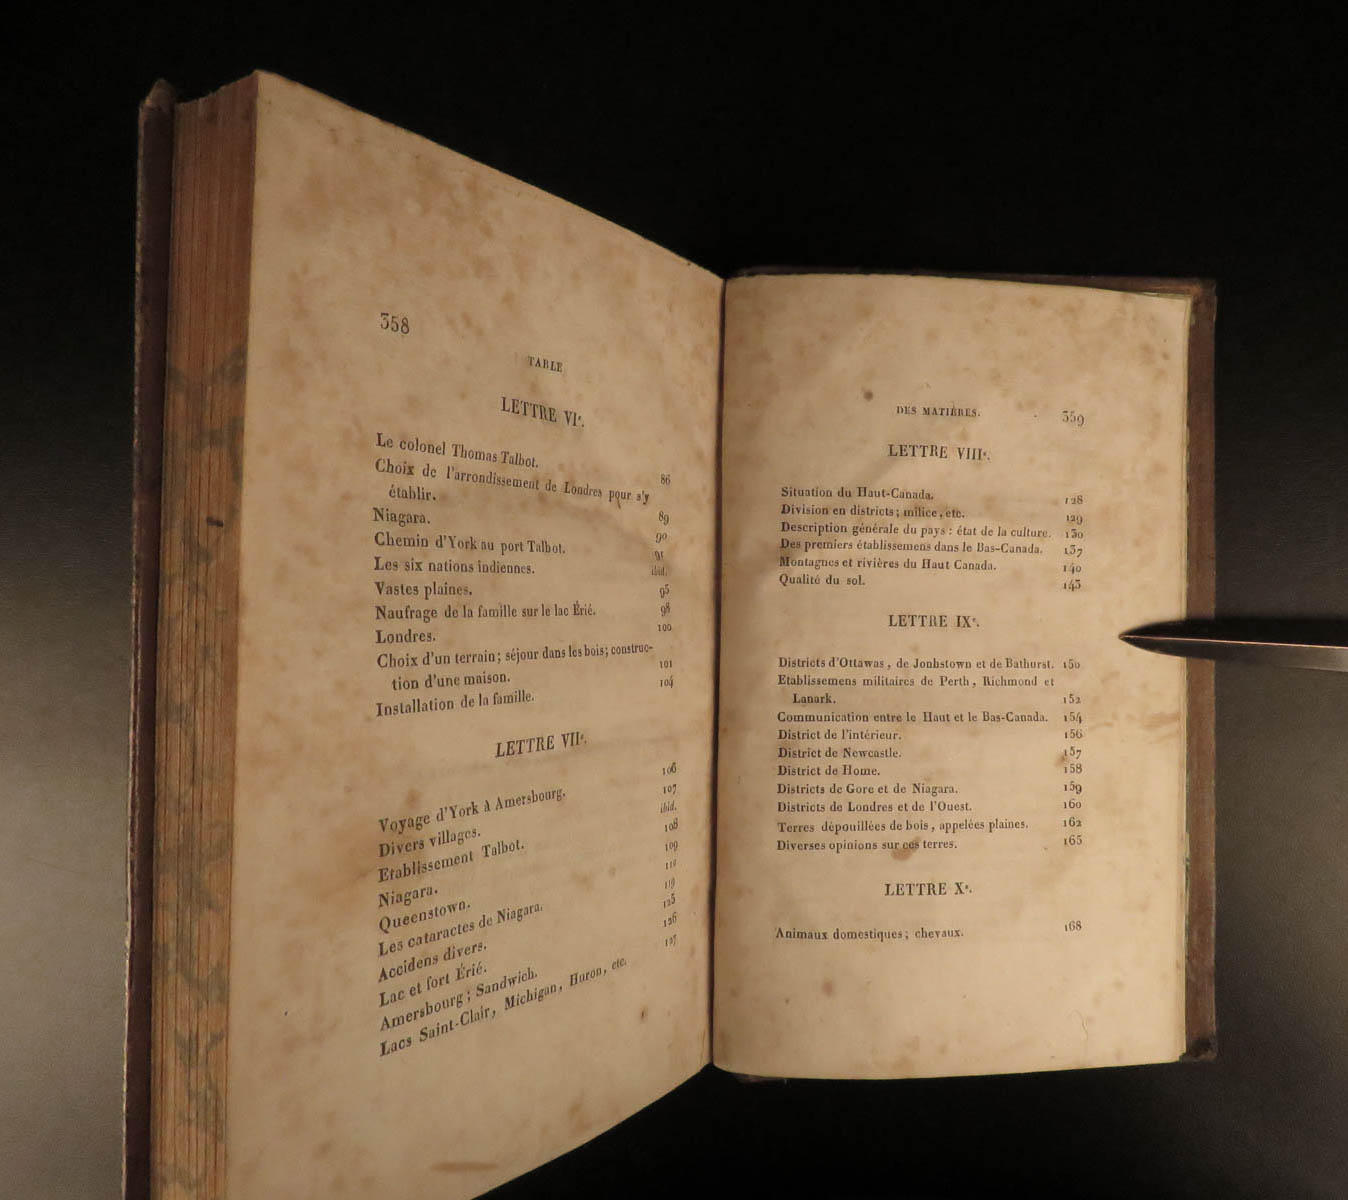 358
TABLE
LETTRE VIe.
Le colonel Thomas Talbot. 86
Choix de l'arrondissement de Londres pour s'y
établir. 89
Niagara. 90
Chemin d'York au port Talbot. 91
Les six nations indiennes. ibid.
Vastes plaines. 93
Naufrage de la famille sur le lac Érié. 98
Londres. 100
Choix d'un terrain; séjour dans les bois; construc-
tion d'une maison. 101
Installation de la famille. 104
LETTRE VIIe.
Voyage d'York à Amersbourg. 106
Divers villages. 107
Etablissement Talbot. ibid.
Niagara. 108
Queenstown. 109
Les cataractes de Niagara. 110
Accidens divers. 119
Lac et fort Érié. 125
Amersbourg; Sandwich. 126
Lacs Saint-Clair, Michigan, Huron, etc. 127
DES MATIÈRES. 359
LETTRE VIIIe.
Situation du Haut-Canada. 128
Division en districts; milice, etc. 129
Description générale du pays : état de la culture. 130
Des premiers établissemens dans le Bas-Canada. 137
Montagnes et rivières du Haut Canada. 140
Qualité du sol. 143
LETTRE IXe.
Districts d'Ottawas, de Jonhstown et de Bathurst. 150
Etablissemens militaires de Perth, Richmond et
Lanark. 152
Communication entre le Haut et le Bas-Canada. 154
District de l'intérieur. 156
District de Newcastle. 157
District de Home. 158
Districts de Gore et de Niagara. 159
Districts de Londres et de l'Ouest. 160
Terres dépouillées de bois, appelées plaines. 162
Diverses opinions sur ces terres. 163
LETTRE Xe.
Animaux domestiques; chevaux. 168